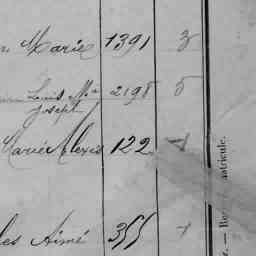 Marie 1391 3
Louis Mie 2198 5
Joseph
Marie Alexis 122
les Aimé 355
matricule.